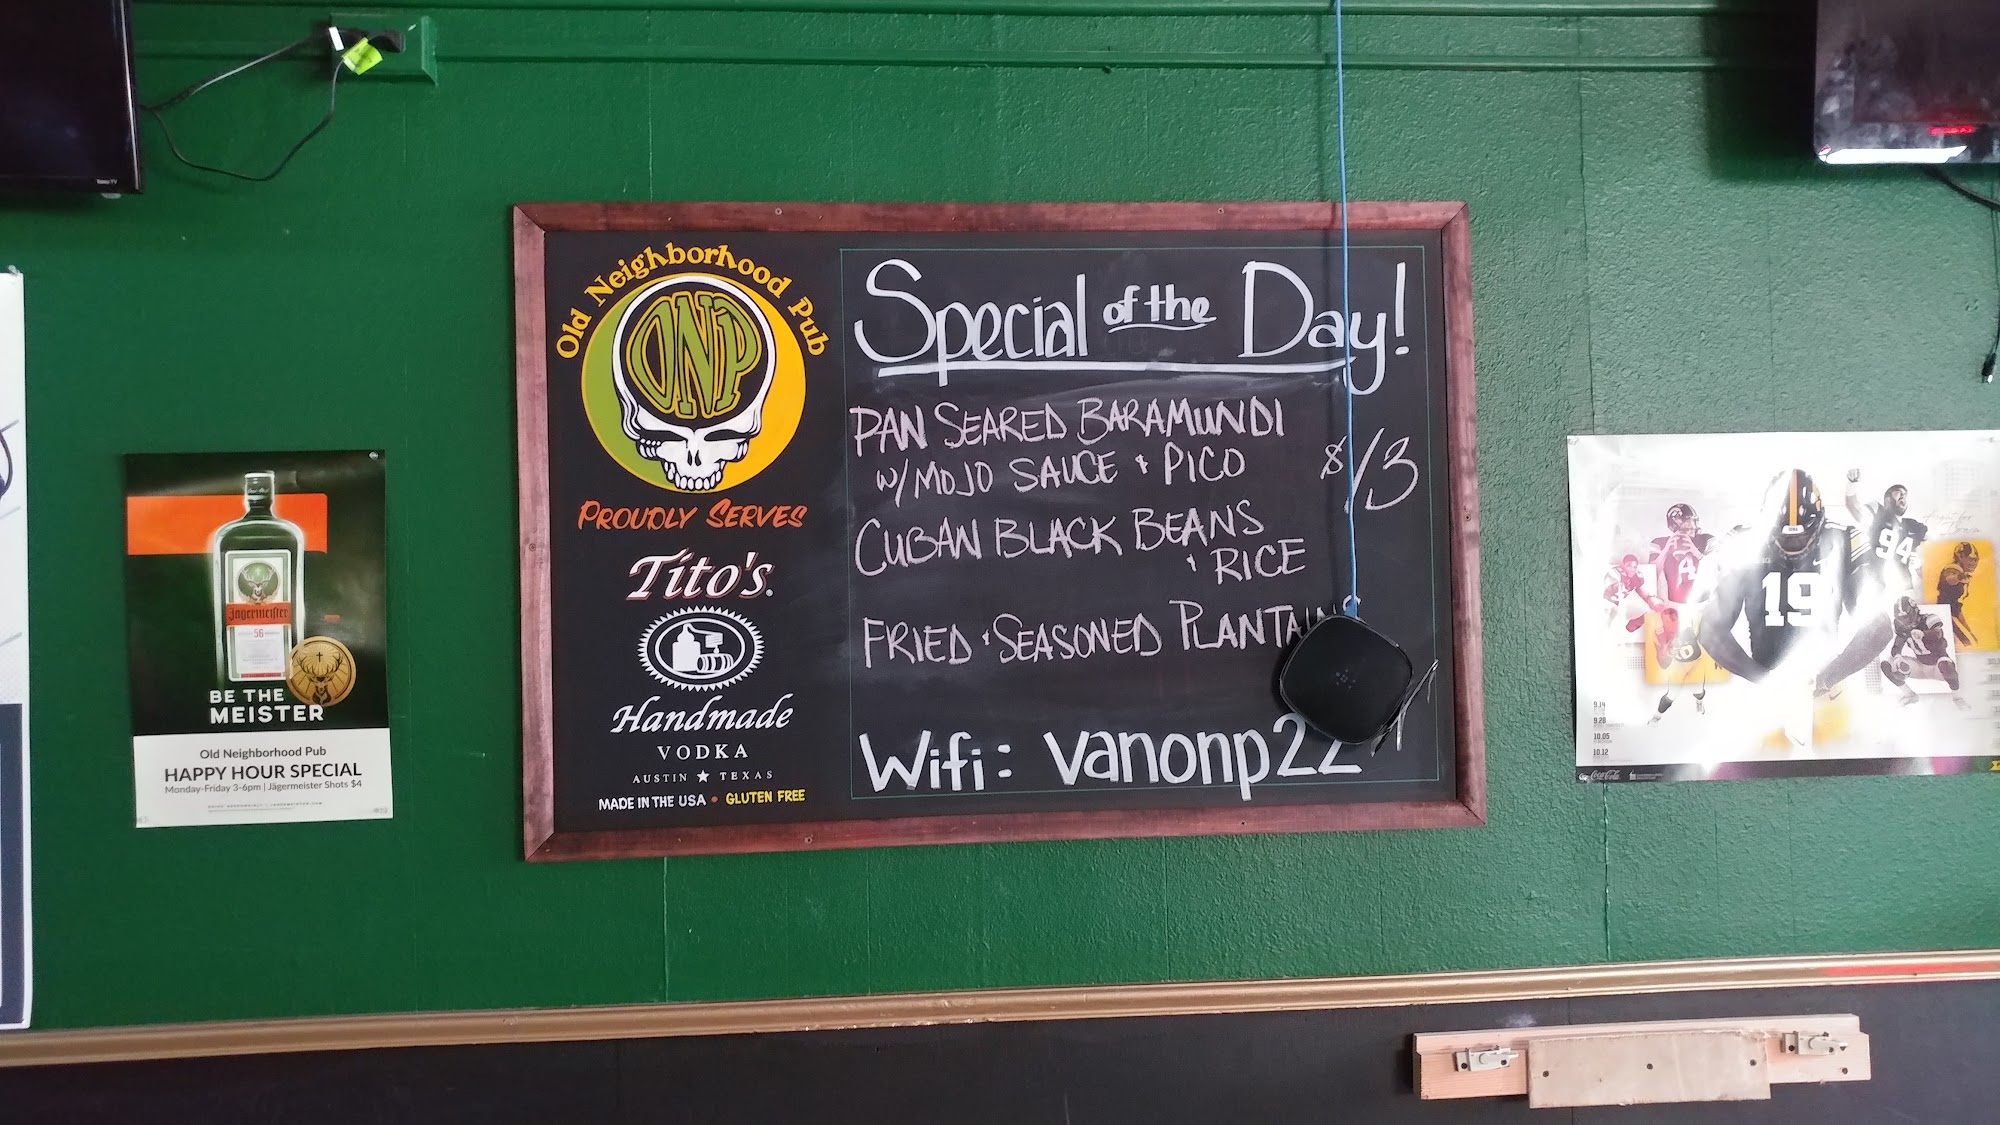 Old Neighborhood Pub
ONP
PROUDLY SERVES
Tito's
Handmade
VODKA
AUSTIN ★ TEXAS
MADE IN THE USA • GLUTEN FREE
Special of the Day!
PAN SEARED BARAMUNDI
W/MOJO SAUCE & PICO $13
CUBAN BLACK BEANS
& RICE
FRIED & SEASONED PLANTAINS
Wifi: vanonp22
Jägermeister
56
BE THE
MEISTER
Old Neighborhood Pub
HAPPY HOUR SPECIAL
Monday-Friday 3-6pm | Jägermeister Shots $4
19
94
4
9.14
9.20
10.05
10.12
Coca-Cola
Roku TV